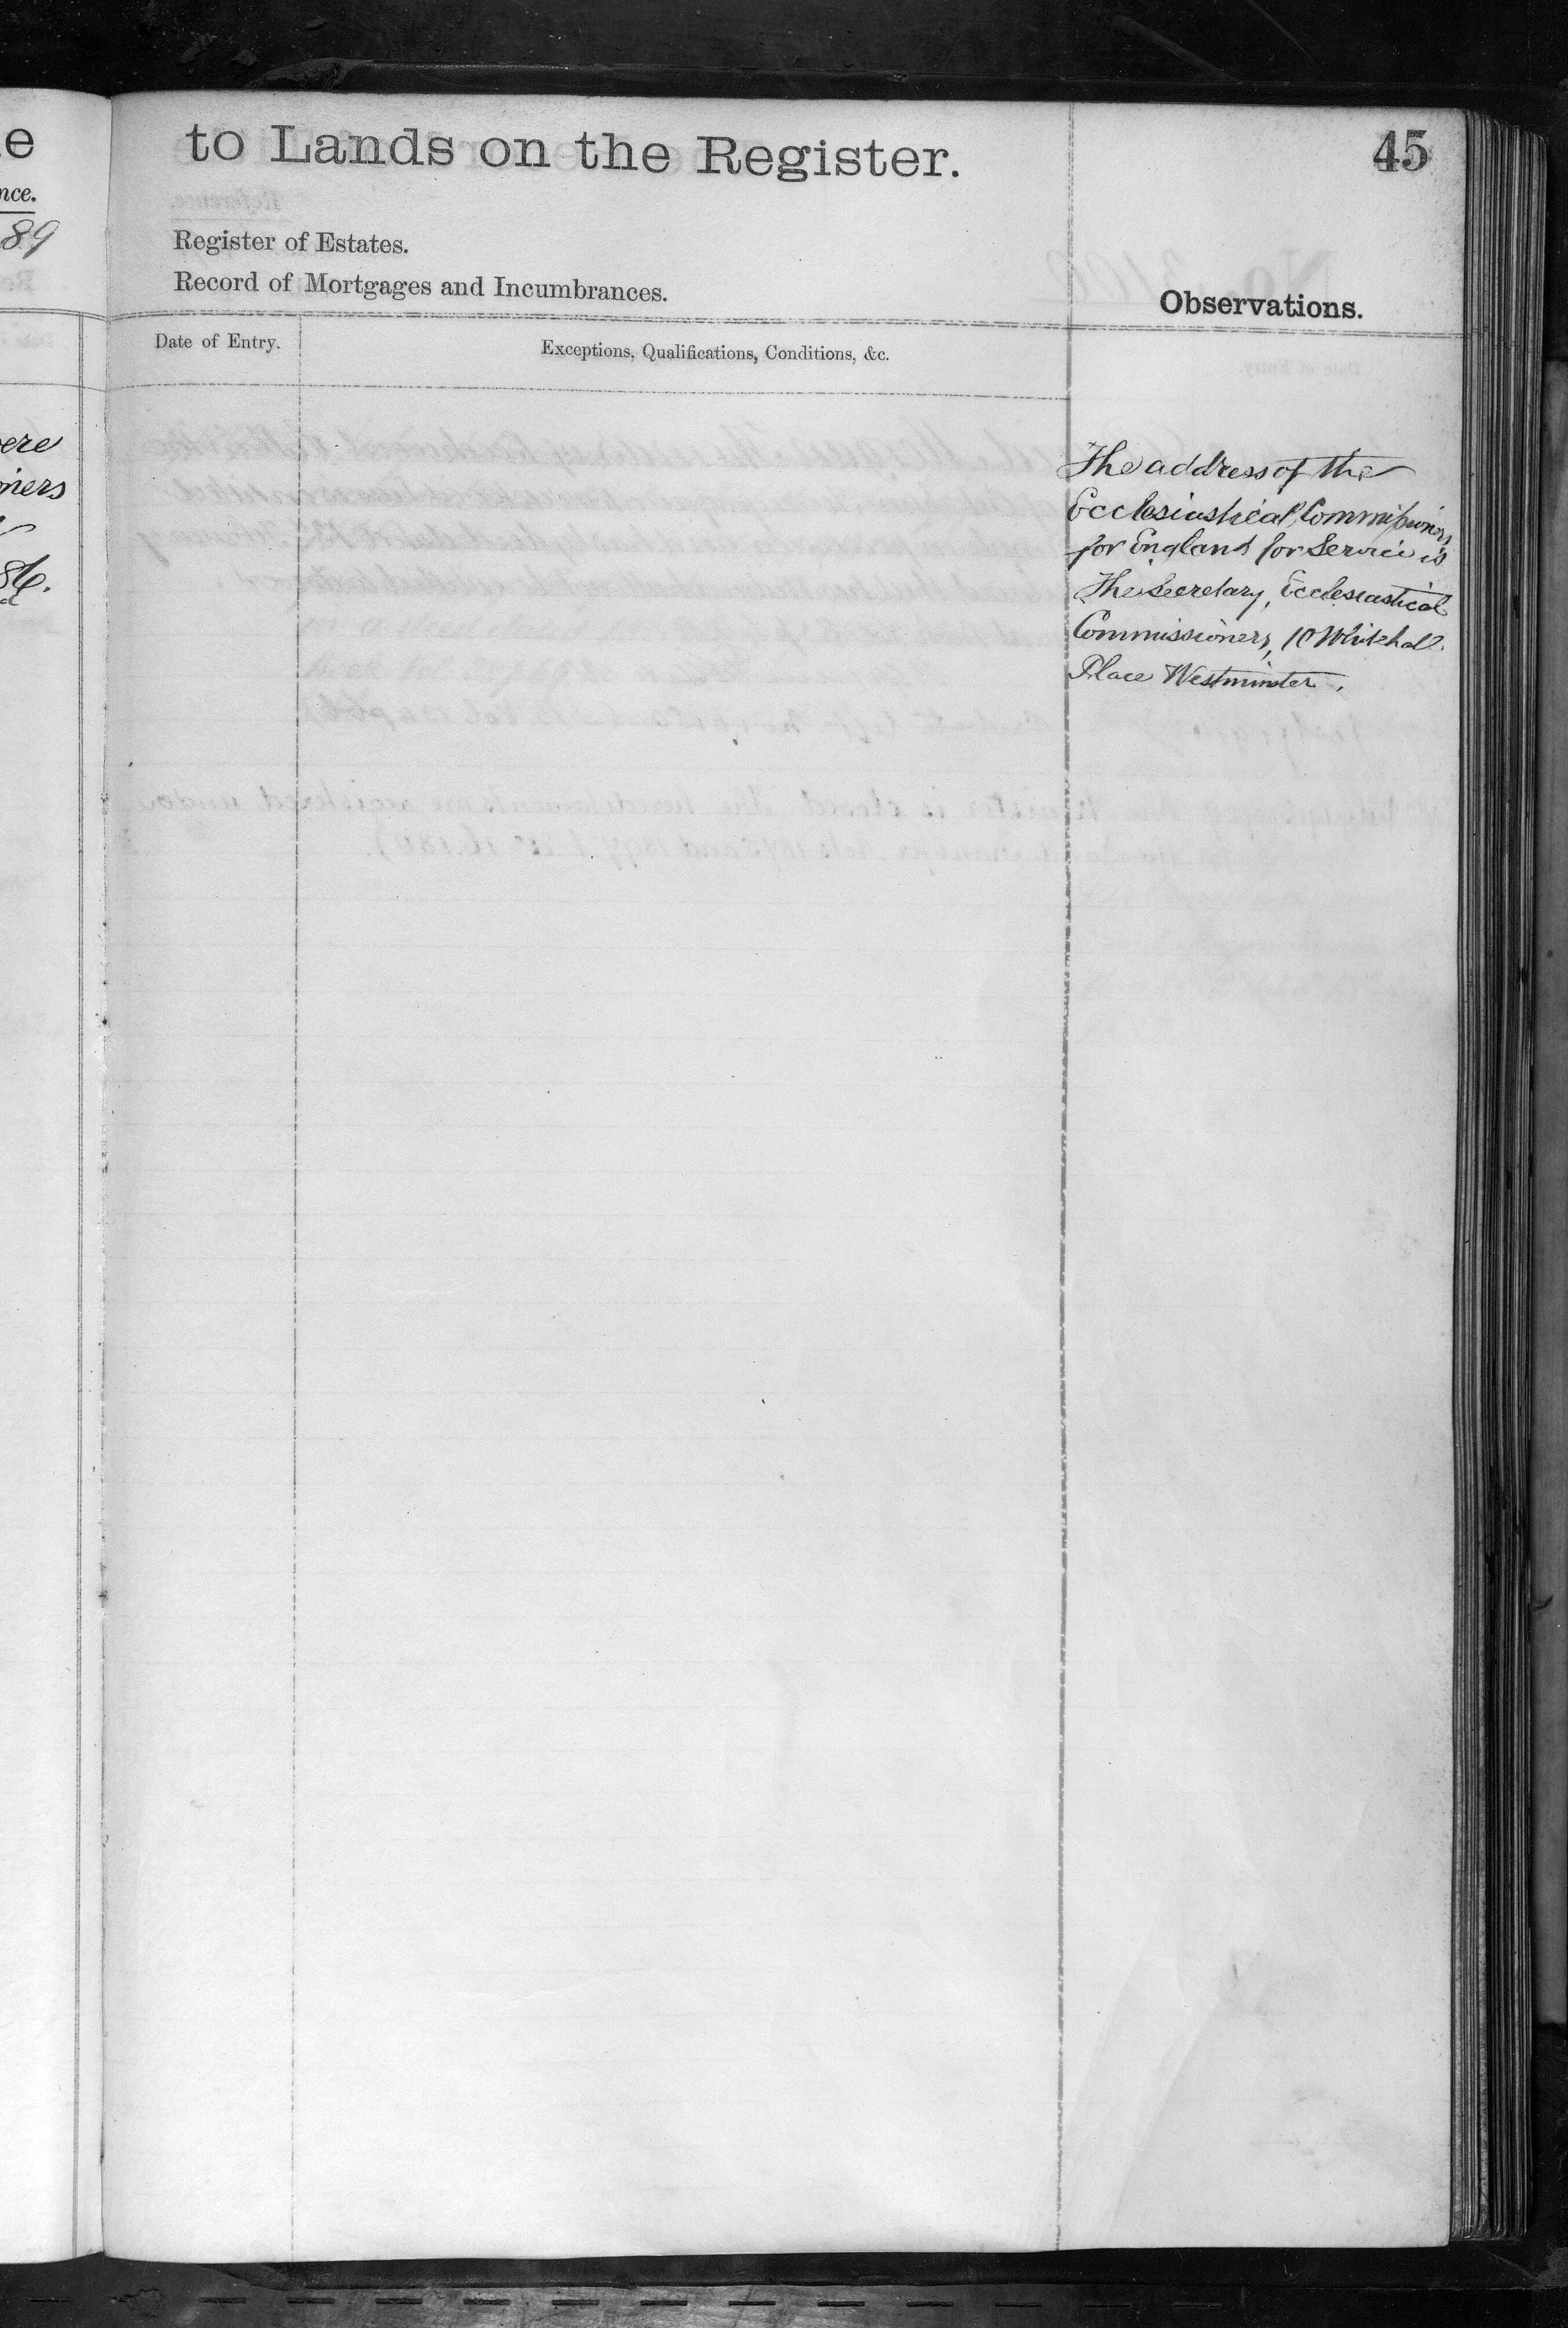 to Lands on the Register.
45
Register of Estates.
Record of Mortgages and Incumbrances.
Observations.
Date of Entry.
Exceptions, Qualifications, Conditions, &c.
The address of the
Ecclesiastical Commissioners
for England for Service is
The Secretary, Ecclesiastical
Commissioners, 10 Whitehall
Place Westminster.
e
nce.
89
ere
oners
86.